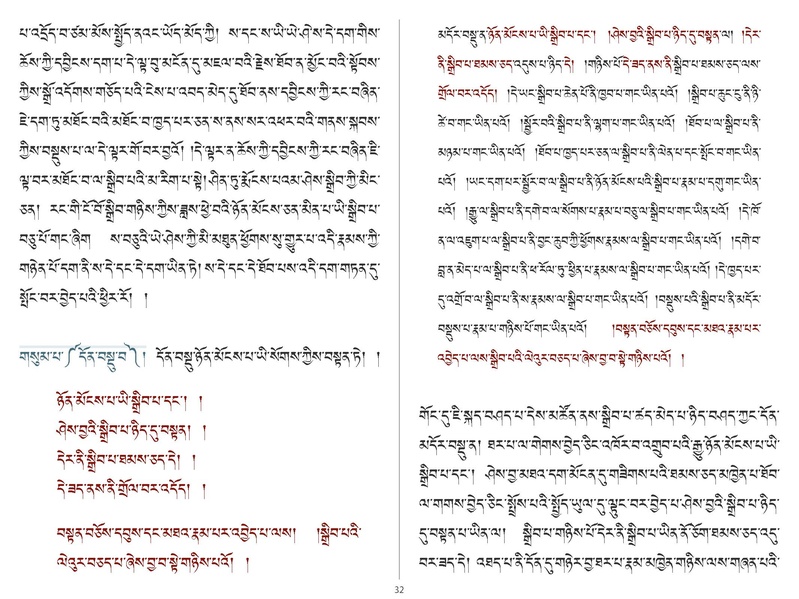 པ་འདྲོད་བ་ཙམ་མོས་སྤྱོད་ནའང་ཡོད་མོད་ཀྱི། ས་དང་ས་ཡི་ཡེ་ཤེས་དེ་དག་གིས་
ཆོས་ཀྱི་དབྱིངས་དག་པ་དེ་ལྟ་བུ་མངོན་དུ་མཇལ་བའི་རྗེས་ཐོབ་ན་མྱོང་བའི་སྟོབས་
ཀྱིས་སྒྲོ་འདོགས་གཅོད་པའི་ངེས་པ་འབད་མེད་དུ་ཐོབ་ནས་དབྱིངས་ཀྱི་རང་བཞིན་
ཇེ་དག་ཏུ་མཐོང་བའི་མཐོང་བ་ཁྱད་པར་ཅན་ས་ནས་སར་འཕར་བའི་གནས་སྐབས་
ཀྱིས་བསྡུས་པ་ལ་དེ་ལྟར་གོ་བར་བྱའོ། །དེ་ལྟར་ན་ཆོས་ཀྱི་དབྱིངས་ཀྱི་རང་བཞིན་ཇི་
ལྟ་བར་མཐོང་བ་ལ་སྒྲིབ་པའི་མ་རིག་པ་སྟེ། ཤིན་ཏུ་རྨོངས་པའམ་ཤེས་སྒྲིབ་ཀྱི་མིང་
ཅན། རང་གི་ངོ་བོ་སྒྲིབ་གཉིས་ཀྱིས་ཟླས་ཕྱེ་བའི་ཉོན་མོངས་ཅན་མིན་པ་ཡི་སྒྲིབ་པ་
བཅུ་པོ་གང་ཞིག ས་བཅུའི་ཡེ་ཤེས་ཀྱི་མི་མཐུན་ཕྱོགས་སུ་གྱུར་པ་འདི་རྣམས་ཀྱི་
གཉེན་པོ་དག་ནི་ས་དེ་དང་དེ་དག་ཡིན་ཏེ། ས་དེ་དང་དེ་ཐོབ་པས་འདི་དག་གཏན་དུ་
སྤོང་བར་བྱེད་པའི་ཕྱིར་རོ། །
གསུམ་པ་༼དོན་བསྡུ་བ༽། དོན་བསྡུ་ཉོན་མོངས་པ་ཡི་སོགས་ཀྱིས་བསྟན་ཏེ། །
ཉོན་མོངས་པ་ཡི་སྒྲིབ་པ་དང༌། །
ཤེས་བྱའི་སྒྲིབ་པ་ཉིད་དུ་བསྟན། །
དེར་ནི་སྒྲིབ་པ་ཐམས་ཅད་དེ། །
དེ་ཟད་ནས་ནི་གྲོལ་བར་འདོད། །
བསྟན་བཅོས་དབུས་དང་མཐའ་རྣམ་པར་འབྱེད་པ་ལས། །སྒྲིབ་པའི་
ལེའུར་བཅད་པ་ཞེས་བྱ་བ་སྟེ་གཉིས་པའོ། །
མདོར་བསྡུ་ན་ཉོན་མོངས་པ་ཡི་སྒྲིབ་པ་དང༌། །ཤེས་བྱའི་སྒྲིབ་པ་ཉིད་དུ་བསྟན་ལ། །དེར་
ནི་སྒྲིབ་པ་ཐམས་ཅད་འདུས་པ་ཉིད་དེ། །གཉིས་པོ་དེ་ཟད་ནས་ནི་སྒྲིབ་པ་ཐམས་ཅད་ལས་
གྲོལ་བར་འདོད། །དེ་ཡང་སྒྲིབ་པ་ཆེན་པོ་ནི་ཁྱབ་པ་གང་ཡིན་པའོ། །སྒྲིབ་པ་ཆུང་ངུ་ནི་ཉི་
ཚེ་བ་གང་ཡིན་པའོ། །སྦྱོར་བའི་སྒྲིབ་པ་ནི་ལྷག་པ་གང་ཡིན་པའོ། །ཐོབ་པ་ལ་སྒྲིབ་པ་ནི་
མཉམ་པ་གང་ཡིན་པའོ། །ཐོབ་པ་ཁྱད་པར་ཅན་ལ་སྒྲིབ་པ་ནི་ལེན་པ་དང་སྤོང་བ་གང་ཡིན་
པའོ། །ཡང་དག་པར་སྦྱོར་བ་ལ་སྒྲིབ་པ་ནི་ཉོན་མོངས་པའི་སྒྲིབ་པ་རྣམ་པ་དགུ་གང་ཡིན་
པའོ། །རྒྱུ་ལ་སྒྲིབ་པ་ནི་དགེ་བ་ལ་སོགས་པ་རྣམ་པ་བཅུ་ལ་སྒྲིབ་པ་གང་ཡིན་པའོ། །དེ་ཁོ་
ན་ལ་འཇུག་པ་ལ་སྒྲིབ་པ་ནི་བྱང་ཆུབ་ཀྱི་ཕྱོགས་རྣམས་ལ་སྒྲིབ་པ་གང་ཡིན་པའོ། །དགེ་བ་
བླ་ན་མེད་པ་ལ་སྒྲིབ་པ་ནི་ཕ་རོལ་ཏུ་ཕྱིན་པ་རྣམས་ལ་སྒྲིབ་པ་གང་ཡིན་པའོ། །དེ་ཁྱད་པར་
དུ་འགྲོ་བ་ལ་སྒྲིབ་པ་ནི་ས་རྣམས་ལ་སྒྲིབ་པ་གང་ཡིན་པའོ། །བསྡུས་པའི་སྒྲིབ་པ་ནི་མདོར་
བསྡུས་པ་རྣམ་པ་གཉིས་པོ་གང་ཡིན་པའོ། །བསྟན་བཅོས་དབུས་དང་མཐའ་རྣམ་པར་
འབྱེད་པ་ལས་སྒྲིབ་པའི་ལེའུར་བཅད་པ་ཞེས་བྱ་བ་སྟེ་གཉིས་པའོ། །
གོང་དུ་ཇི་སྐད་བཤད་པ་དེས་མཚོན་ནས་སྒྲིབ་པ་ཚད་མེད་པ་ཉིད་བཤད་ཀྱང་དོན་
མདོར་བསྡུ་ན། ཐར་པ་ལ་གེགས་བྱེད་ཅིང་འཁོར་བ་འགྲུབ་པའི་རྒྱུ་ཉོན་མོངས་པ་ཡི་
སྒྲིབ་པ་དང༌། ཤེས་བྱ་མཐའ་དག་མངོན་དུ་གཟིགས་པའི་ཐམས་ཅད་མཁྱེན་པ་ཐོབ་
ལ་གགས་བྱེད་ཅིང་སྤྲོས་པའི་སྤྱོད་ཡུལ་དུ་ལྟུང་བར་བྱེད་པ་ཤེས་བྱའི་སྒྲིབ་པ་ཉིད་
དུ་བསྟན་པ་ཡིན་ལ། སྒྲིབ་པ་གཉིས་པོ་དེར་ནི་སྒྲིབ་པ་ཡིན་ནོ་ཅོག་ཐམས་ཅད་འདུ་
བར་ཟད་དེ། འཐད་པ་ནི་དོན་དུ་གཉེར་བྱ་ཐར་པ་རྣམ་མཁྱེན་གཉིས་ལས་གཞན་པའི་
32